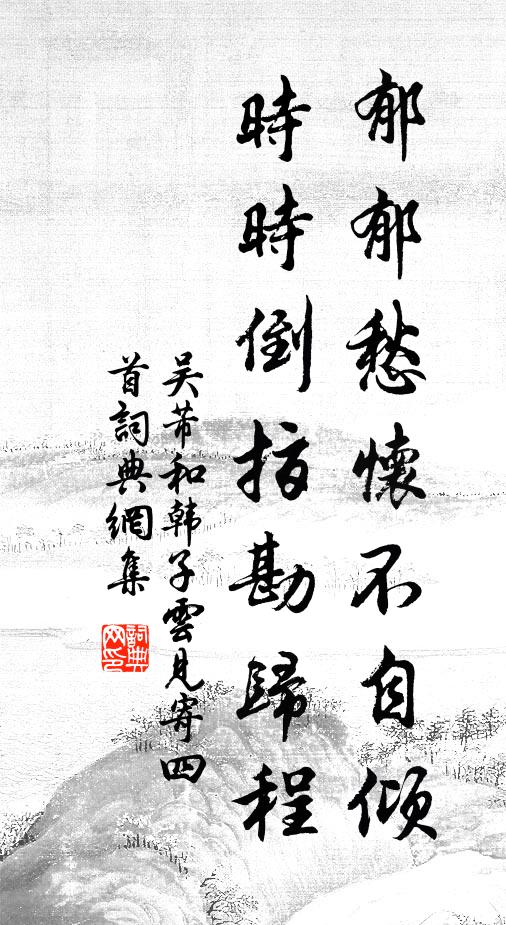 郁郁愁懷不自傾
時時倒指勘歸程
吴芾和韩子雲見寄四
首詞典網集
詞典网印